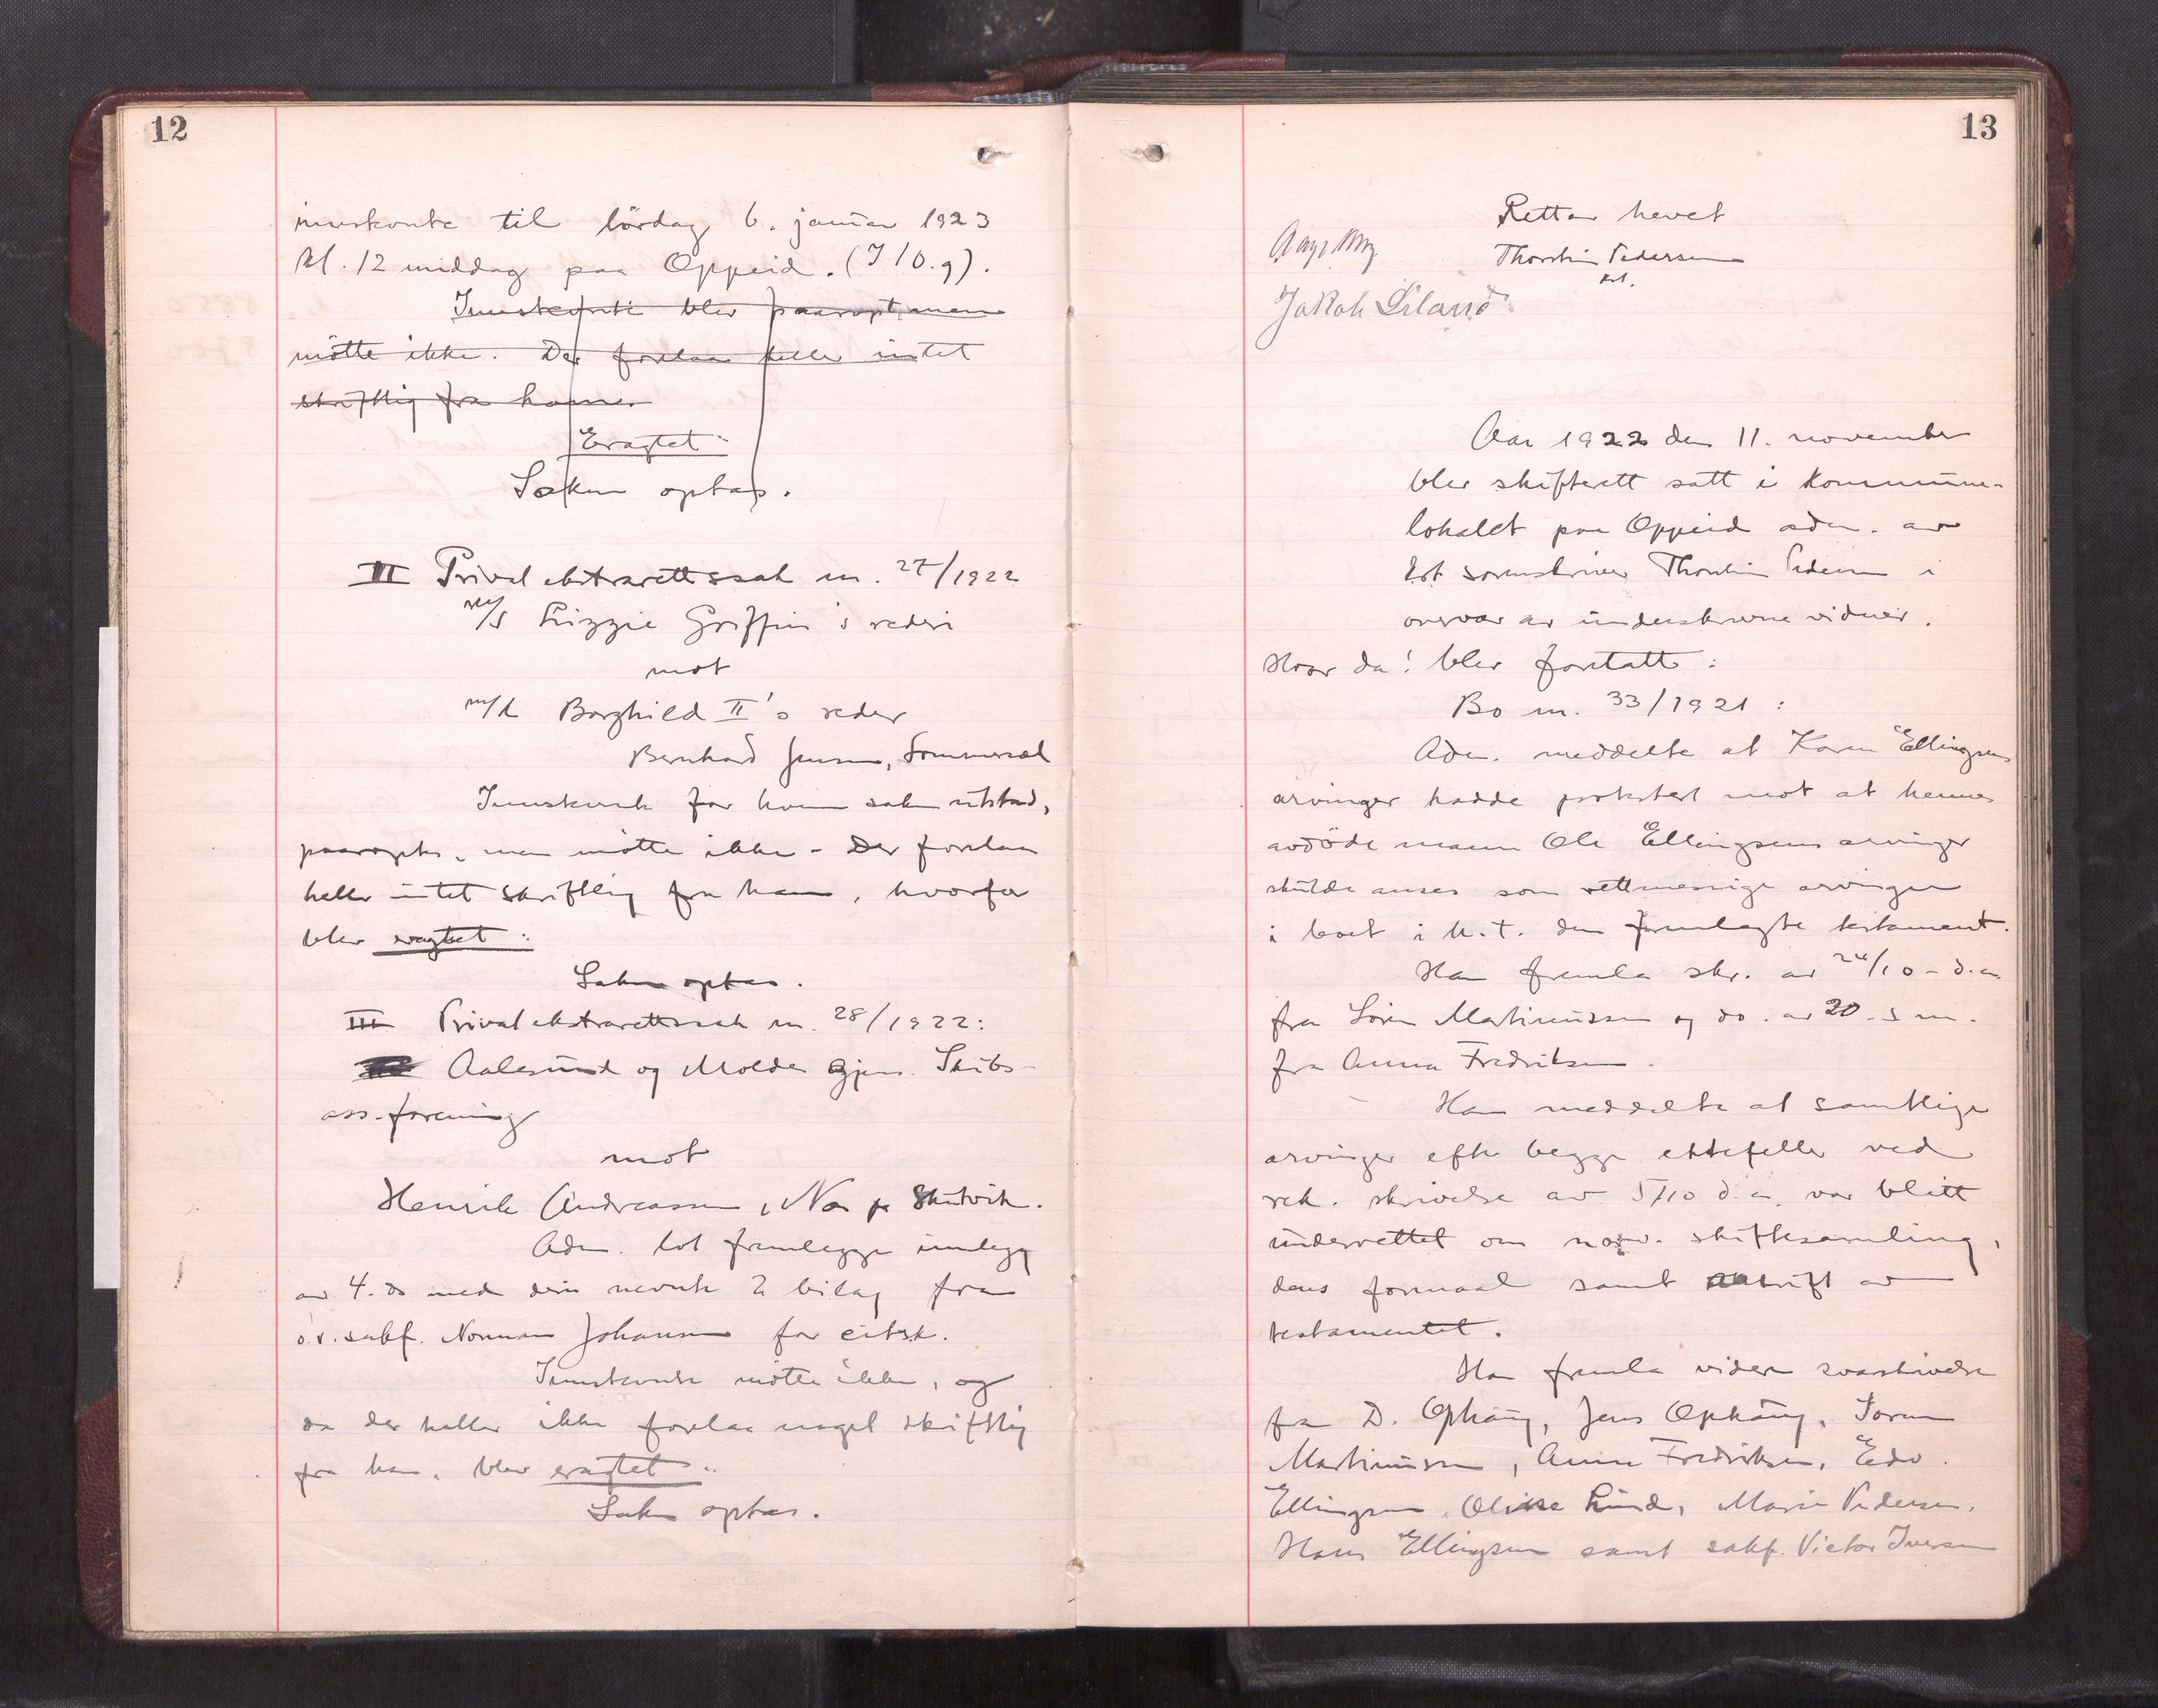 12
innskevnte til lördag 6. januar 1923
kl. 12 middag paa Oppeid. (J 10.9).
Innstevnte blev paaropt, men
mötte ikke. Der forelaa heller intet
skriftlig fra ham.
Eragtet:
Saken optas.
II Privat ekstrarettssak nr. 27/1922
m/s Lizzie Griffin's rederi
mot
m/k Borghild II's reder
Bernhard Jensen, Sommersel
Innstevnte for hvem saken utstod,
paaroptes, men mötte ikke - Der forelaa
heller intet skriftlig fra ham, hvorfor
blev eragtet:
Saken optas.
III Privat ekstrarettssak nr. 28/1922:
Aalesund og Molde gjens. Skibs-
ass.forening
mot
Henrik Andreassen, Nes pr Skutvik.
Adm. lot fremlegge innlegg
av 4. ds med deri nevnte 2 bilag fra
o.r.sakf. Norman Johansen for citsk.
Innstevnte mötte ikke, og
da der heller ikke forelaa noget skriftlig
fra ham, blev eragtet:
Saken optas.
13
Retten hevet
Thorstein Pedersen
kst.
Jakob Eiland
Aar 1922 den 11. november
blev skifterett satt i Kommune-
lokalet paa Oppeid adm. av
kst sorenskriver Thorstein Pedersen i
overvær av underskrevne vidner.
Hvor da! blev foretatt:
Bo nr. 33/1921:
Adm. meddelte at Karen Ellingsens
arvinger hadde protestert mot at hennes
avdöde mann Ole Ellingsens arvinger
skulde anses som rettmessige arvinger
i boet i h.t. den fremlagte testament.
Han fremla skr. av 24/10 - d.a.
fra Sören Martinussen og do. av 20. s m.
fra Anna Fredriksen.
Han meddelte at samtlige
arvinger efter begge ektefeller ved
rek. skrivelse av 5/10 d.a. var blitt
underrettet om nærv. skiftesamling,
dens formaal samt avskrift av
testamentet.
Han fremla videre svarskrivelse
fra D. Ophaug, Jens Ophaug, Soren
Martinussen, Anna Fredriksen, Edv.
Ellingsen, Olisse Lund, Marie Pedersen,
Hans Ellingsen samt sakf. Victor Iversen